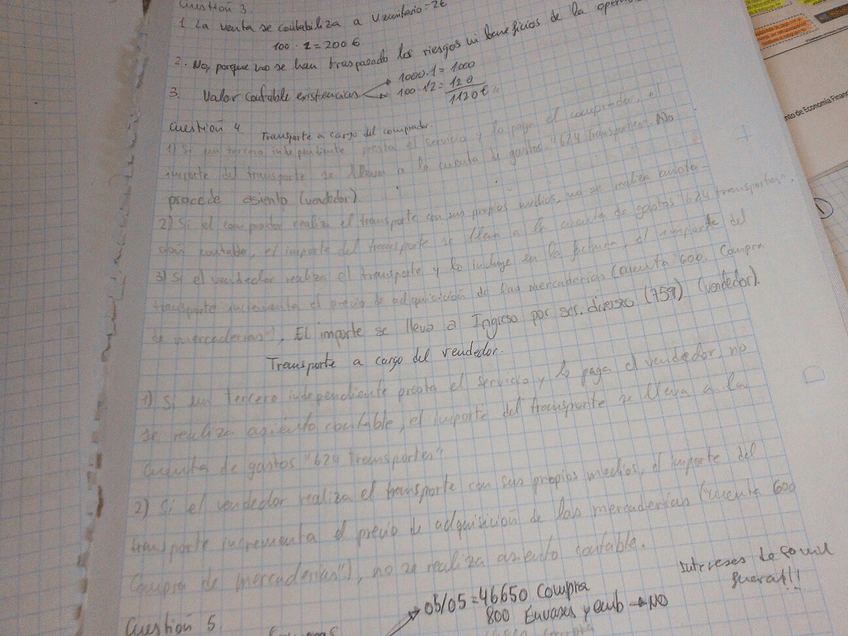 Cuestión 3.
1. La venta se contabiliza a V.unitario = 2€
100 · 2 = 200€
2. No, porque no se han traspasado los riesgos ni beneficios de la
3. Valor contable existencias
1000·1 = 1000
100·1'2 = 120
1120€
Cuestión 4
Transporte a cargo del comprador.
1) Si un tercero independiente presta el servicio y lo paga el comprador, el
importe del transporte se lleva a la cuenta de gastos "624 transportes". No
procede asiento (vendedor).
2) Si el comprador realiza el transporte con sus propios medios, no se realiza anota-
ción contable, el importe del transporte se lleva a la cuenta de gastos "624 transportes".
3) Si el vendedor realiza el transporte y lo incluye en la factura, el importe del
transporte incrementa el precio de adquisición de las mercaderías (cuenta "600. Compra
de mercaderías"). El importe se lleva a Ingreso por ser. diversos (759) (vendedor).
Transporte a cargo del vendedor.
1) Si un tercero independiente presta el servicio y lo paga el vendedor, no
se realiza asiento contable, el importe del transporte se lleva a la
cuenta de gastos "624 transportes"
2) Si el vendedor realiza el transporte con sus propios medios, el importe del
transporte incrementa el precio de adquisición de las mercaderías (cuenta 600
Compra de mercaderías"), no se realiza asiento contable.
Cuestión 5
05/05 = 46650 Compra
800 Envases y emb → NO
Intereses
fuera!!
de Economía Finan